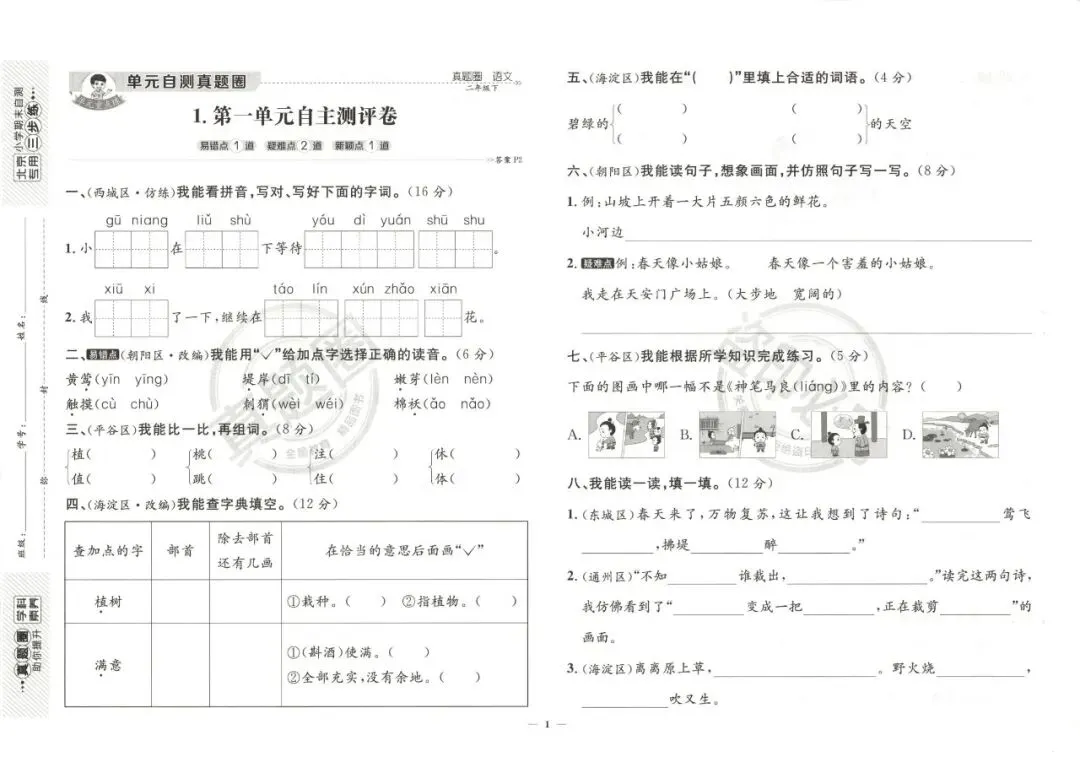 单元自测真题圈
真题圈 语文
二年级下
1.第一单元自主测评卷
易错点1道 疑难点2道 新颖点1道
答案P2
一、(西城区·仿练)我能看拼音,写对、写好下面的字词。(16分)
gū niang liǔ shù yóu dì yuán shū shu
1.小 在 下等待 。
xiū xi táo lín xún zhǎo xiān
2.我 了一下,继续在 花。
二、易错点(朝阳区·改编)我能用“✓”给加点字选择正确的读音。(6分)
黄莺(yīn yīng) 堤岸(dī tí) 嫩芽(lèn nèn)
触摸(cù chù) 刺猬(wèi wéi) 棉袄(ǎo nǎo)
三、(平谷区)我能比一比,再组词。(8分)
植( ) 桃( ) 注( ) 休( )
值( ) 跳( ) 住( ) 体( )
四、(海淀区·改编)我能查字典填空。(12分)
查加点的字 部首 除去部首还有几画 在恰当的意思后面画“✓”
植树 ①栽种。( ) ②指植物。( )
满意 ①(斟酒)使满。( )
②全部充实,没有余地。( )
五、(海淀区)我能在“( )”里填上合适的词语。(4分)
( ) ( )
碧绿的 的天空
( ) ( )
六、(朝阳区)我能读句子,想象画面,并仿照句子写一写。(8分)
1.例:山坡上开着一大片五颜六色的鲜花。
小河边
2.疑难点例:春天像小姑娘。 春天像一个害羞的小姑娘。
我走在天安门广场上。(大步地 宽阔的)
七、(平谷区)我能根据所学知识完成练习。(5分)
下面的图画中哪一幅不是《神笔马良(liáng)》里的内容?( )
A. B. C. D.
八、我能读一读,填一填。(12分)
1.(东城区)春天来了,万物复苏,这让我想到了诗句:“ 莺飞
,拂堤 醉 。”
2.(通州区)“不知 谁裁出, 。”读完这两句诗,
我仿佛看到了“ 变成一把 ,正在裁剪 ”的
画面。
3.(海淀区)离离原上草, 。野火烧
, 吹又生。
— 1 —
北京专用
小学期末自测
三步练
姓名:
学号:
班级:
线
封
真题圈
学科素养
助你提升